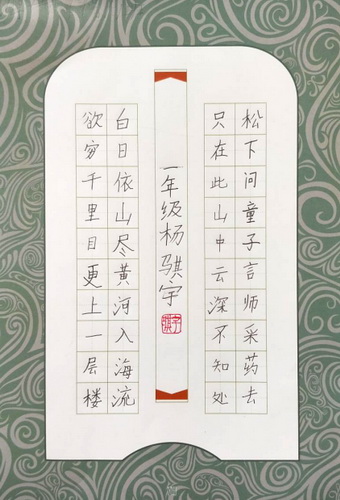 松下问童子言师采药去
只在此山中云深不知处
一年级杨骐宇
白日依山尽黄河入海流
欲穷千里目更上一层楼